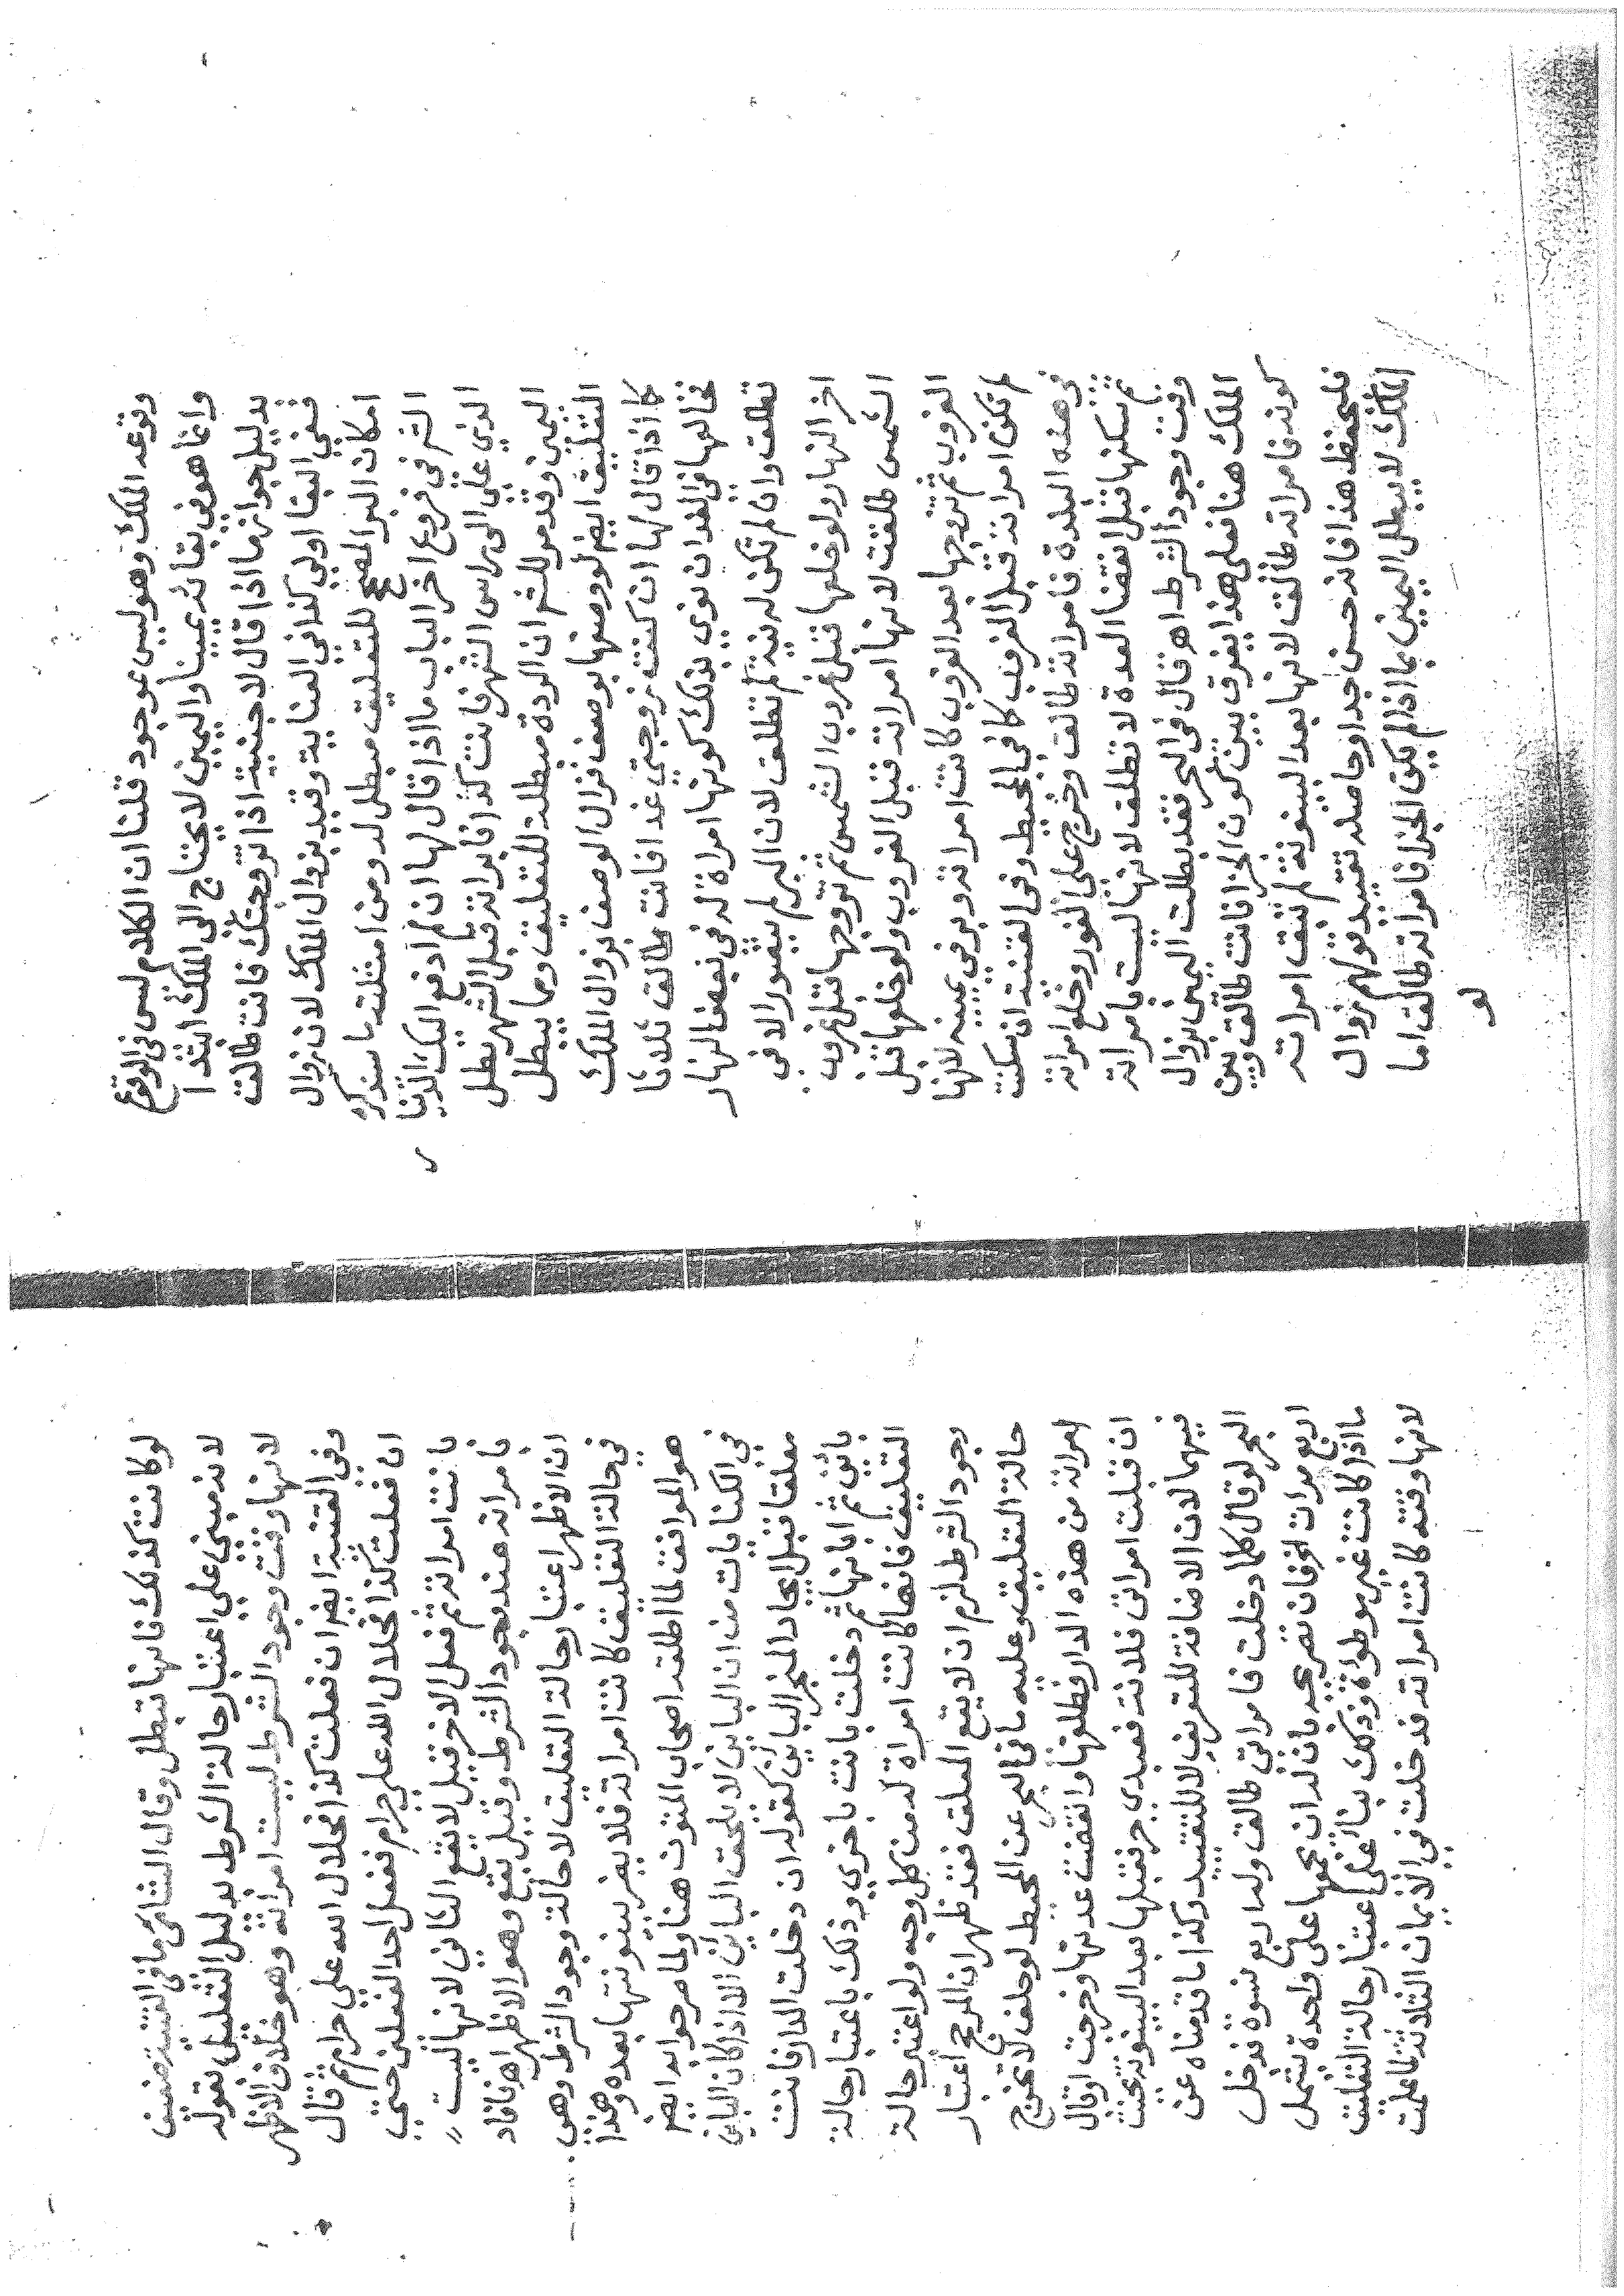 وقوعه الملك وهو ليس بموجود قلنا ان الكلام ليس في الوقوع
وانما هو في بقائه يمينا واليمين لا يحتاج الى الملك ابتداء
بدليل جوازها اذا قال لاجنبية اذا تزوجتك فانت طالق
ففي البقا اولى كذا في العناية وقيد بزوال الملك لان زوال
امكان البر المصحح للتعليق مبطل له ومن امثلته ما سنذكره
الشرفي فروع اخر الباب ما اذا قال لها ان لم ادفع اليك الدينا
الذي علي الى راس الشهر فانت كذا فابراته قبل الشهر بطل
اليمين وقدم للشم ان الردة مبطلة للتعليق ومما يبطل
التعليق ايضا لو وصفها بوصف فزال الوصف بزوال الملك
كما اذا قال لها ان كنت زوجتي غدا فانت طالق ثلاثا
فخالعها في الغد ان نوى بذلك كونها امراة له في بعض النهار
تطلق وان لم تكن له نية لم تطلق لان البر لم يتقرر الا في
اخر النهار ولو خلعها قبل غروب الشمس ثم تزوجها قبل غروب
الشمس طلقت لانها امراته قبل الغروب ولو خلعها قبل
الغروب ثم تزوجها بعد الغروب كانت امراته وبر في يمينه لانها
لم تكن امراته قبل الغروب كما في المحيط وفي القنية ان سكنت
في هذه البلدة فامراته طالق وخرج على الفور وخلع امراته
ثم سكنها قبل انقضا العدة لا تطلق لانها ليست بامراته
وقت وجود الشرط اهـ قال في البحر فقد بطلت اليمين بزوال
الملك هنا فعلى هذا يفرق بين كون الجزا فانت طالق وبين
كونه فامراته طالق لانها بعد البينونة لم تبق امراته
فليحفظ هذا فانه حسن جدا وحاصله تقييد قولهم زوال
الملك لا يبطل اليمين بما اذا لم يكن الجزا فامراته طالق اما
لو
لو كانت كذلك فانها تبطل وقال الشامي ما في القنية ضعيف
لانه مبني على اعتبار حالة الشرط بدليل التعليل بقوله
لانها وقت وجود الشرط ليست امراته وهو خلاف الاظهر
وفي القنية ايضا ان فعلت كذا فحلال الله علي حرام ثم قال
ان فعلت كذا فحلال الله علي حرام ففعل احد الفعلين حتى
بانت امراته ثم فعل الاخر قيل لا يقع الثاني لانها ليست
بامراته عند وجود الشرط وقيل يقع وهو الاظهر اهـ فافاد
ان الاظهر اعتبار حالة التعليق لا حالة وجود الشرط وهي
في حالة التعليق كانت امراته فلا يضر بينونتها بعده وهذا
هو الموافق لما اطلقه اصحاب المتون هنا ولما مر جوابه ايضا
في الكنايات من ان الباين لا يلحق الباين الا اذا كان الباين
معلقا قبل ايجاد المنجز الباين كقوله ان دخلت الدار فانت
بائن ثم ابانها ثم دخلت بانت باخرى وذلك باعتبار حالة
التعليق فانها كانت امراة له من كل وجه ولو اعتبر حالة
وجود الشرط لزم ان لا يقع المعلق فقد ظهر ان المرجح اعتبار
حالة التعليق وعليه ما في البحر عن المحيط لو حلف لا تخرج
امراته من هذه الدار فطلقها وانقضت عدتها وخرجت او قال
ان قبلت امراتي فلانة فعبدي حر فقبلها بعد البينونة يحنث
فيهما لان الاضافة للتعريف لا للتقييد وكذا ما قدمناه عن
البحر لو قال كلما دخلت فامراتي طالق وله اربع نسوة فدخل
اربع مرات الخ فانه تصريح بان له ان يجمعها على واحدة يشمل
ما اذا كانت غير موطؤة وذلك بناء على اعتبار حالة التعليق
لانها وقته كانت امراته فدخلت في الايمان الثلاثة لما علمت